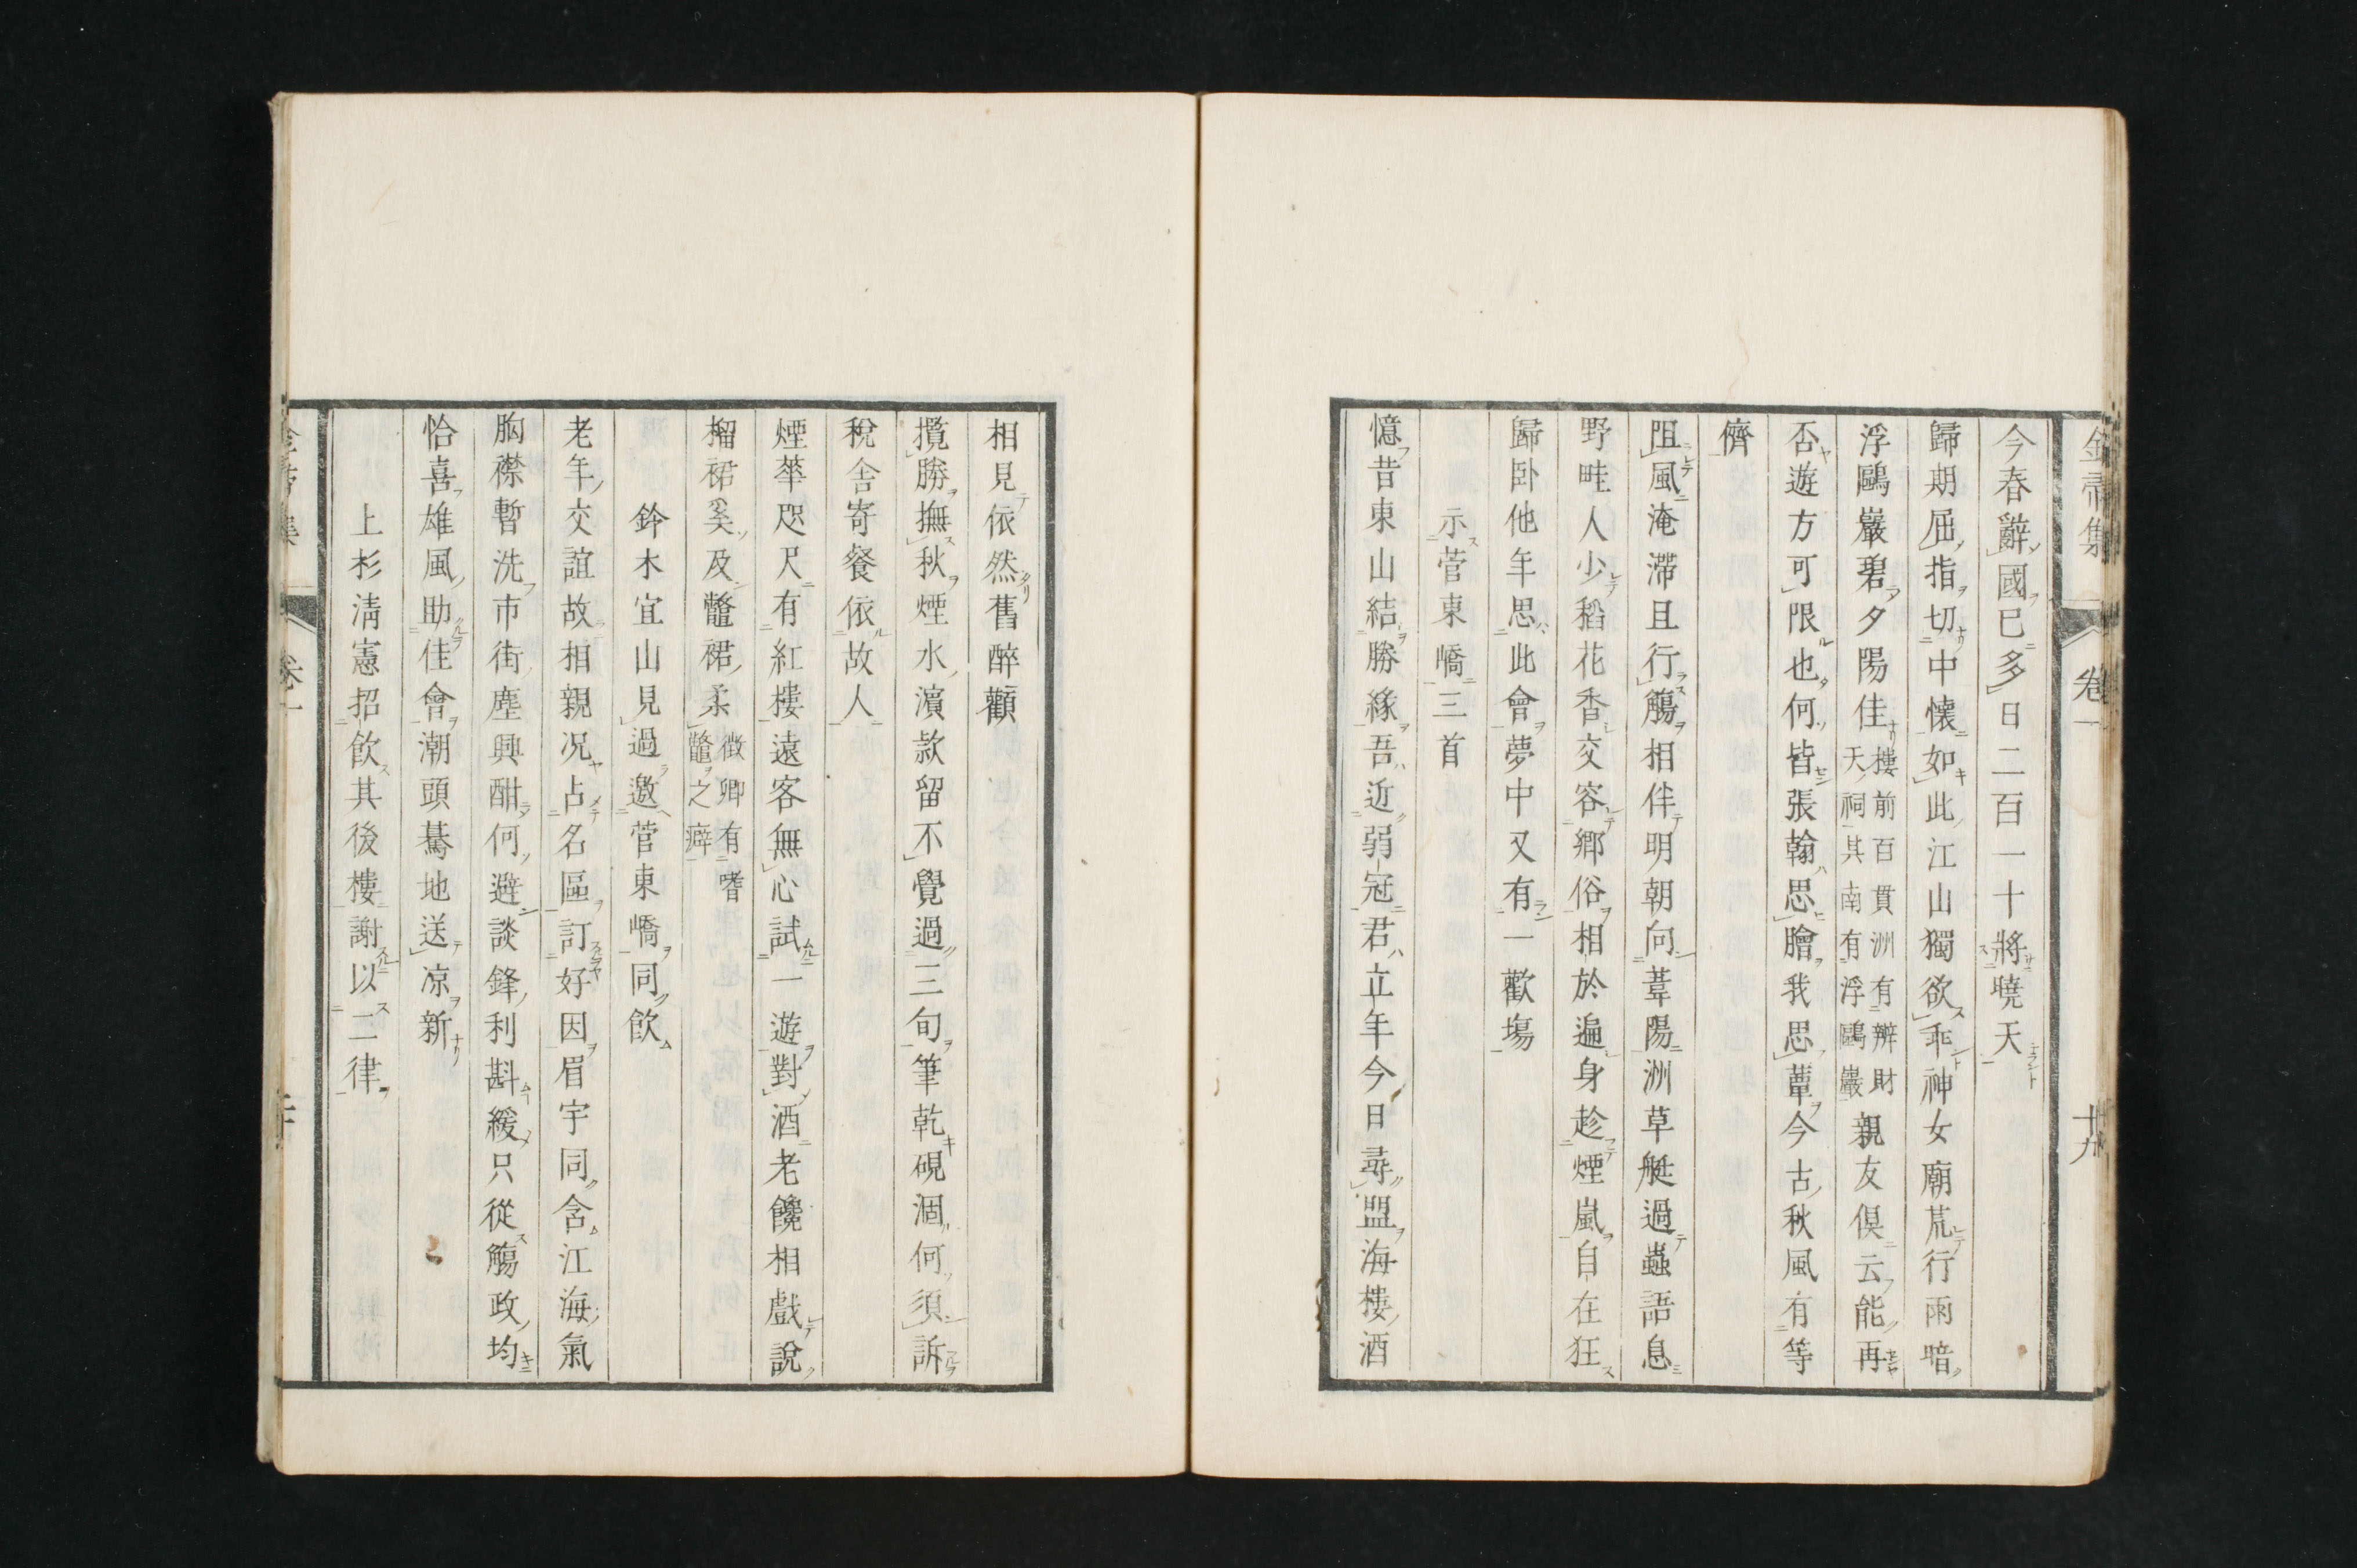 金帚集 卷一 十九
今春辭國已多日二百一十將曉天
歸期屈指切中懷如此江山獨欲乖神女廟荒行雨暗
浮鷗巖碧夕陽佳樓前百貫洲有辨財天祠其南有浮鷗巖親友俱云能再
否遊方可限也何皆張翰思膾我思蓴今古秋風有等
儕
阻風淹滯且行觴相伴明朝向葦陽洲草艇過蟲語息
野畦人少稻花香交容鄉俗相於遍身趁煙嵐自在狂
歸卧他年思此會夢中又有一歡塲
示菅東嶠三首
憶昔東山結勝緣吾近弱冠君立年今日尋盟海樓酒
相見依然舊醉顴
攬勝撫秋煙水濱款留不覺過三旬筆乾硯涸何須訴
稅舎寄餐依故人
煙華咫尺有紅樓遠客無心試一遊對酒老饞相戲說
榴裙奚及鼈裙柔徴卿有嗜鼈之癖
鈴木宜山見過邀菅東嶠同飲
老年交誼故相親况占名區訂好因眉宇同含江海氣
胸襟暫洗市街塵興酣何避談鋒利斟緩只從觴政均
恰喜雄風助佳會潮頭驀地送凉新
上杉淸憲招飲其後樓謝以二律
卷一